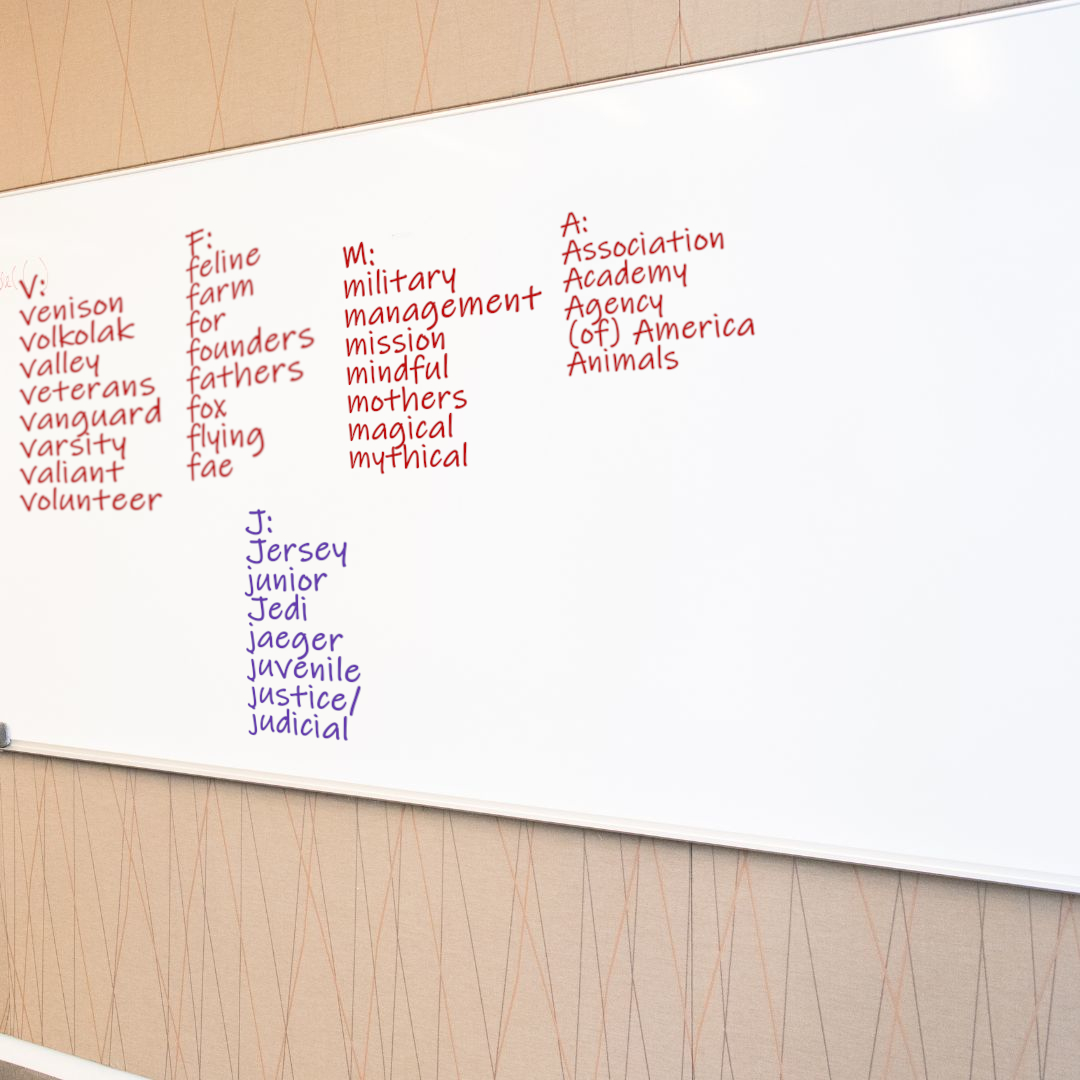 V:
venison
volkolak
valley
veterans
vanguard
varsity
valiant
volunteer
F:
feline
farm
for
founders
fathers
fox
flying
fae
M:
military
management
mission
mindful
mothers
magical
mythical
A:
Association
Academy
Agency
(of) America
Animals
J:
Jersey
junior
Jedi
jaeger
juvenile
justice/
judicial